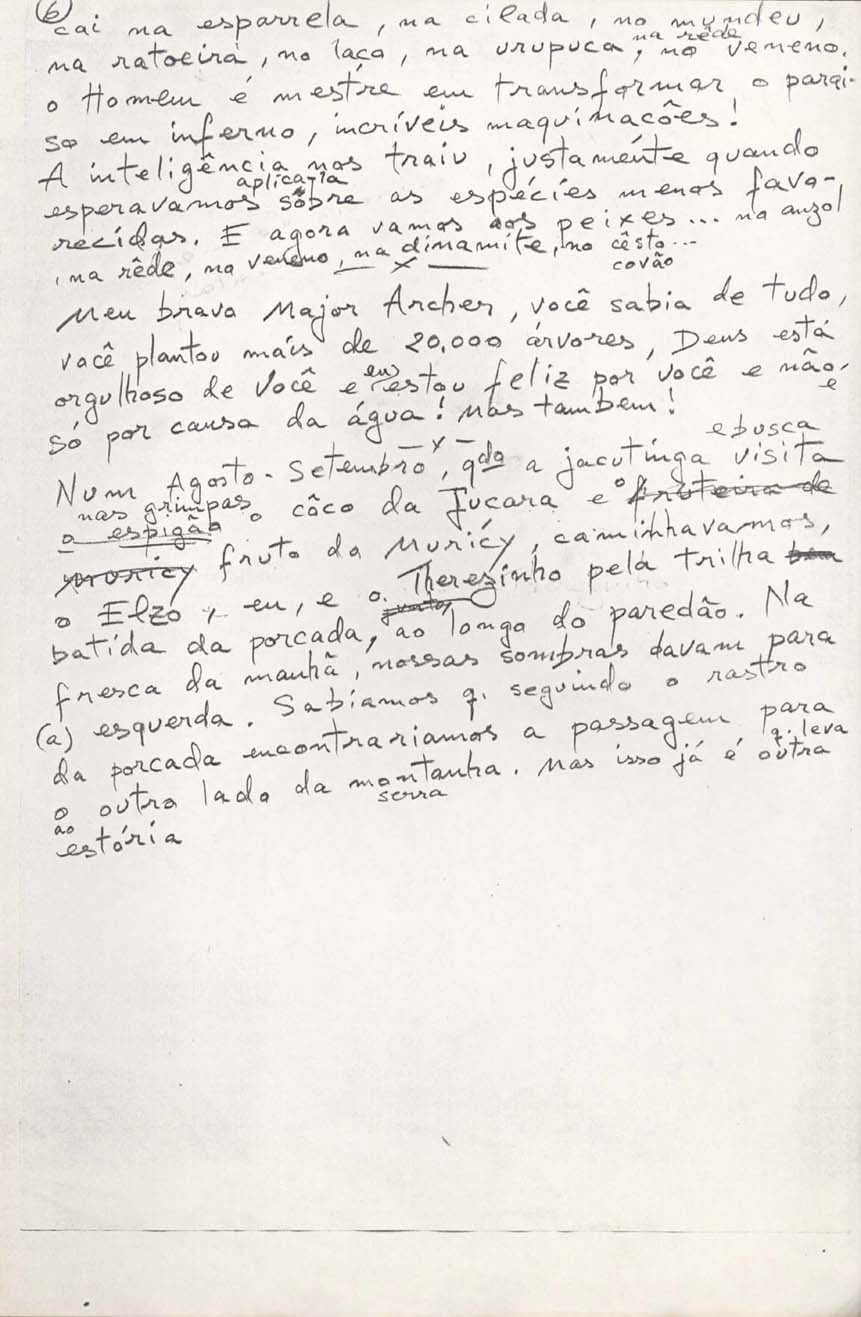 (6)
cai na esparrela, na cilada, no mundeu,
na rêde
na ratoeira, no laço, na urupuca, no veneno.
o Homem é mestre em transformar o parai-
so em inferno, incríveis maquinacões!
A inteligência nos traiu, justamente quando
aplica-la
esperavamos sôbre as espécies menos favo-
recidas. E agora vamos aos peixes... na anzol
, na rêde, no veneno, na dinamite, no cêsto...
covão
— x —
Meu bravo Major Archer, você sabia de tudo,
você plantou máis de 20.000 árvores, Deus está
eu
orgulhoso de você e estou feliz por você e não
é
só por causa da água! Mas tambem!
— x —
e busca
Num Agosto-Setembro, qdo a jacutinga visita
nas grimpas
o côco da Jucara e o fruteira de
o espigão
muricy fruto da Muricy, caminhavamos,
o Elzo, eu, e o Therezinho pela trilha bem
juntos
batida da porcada, ao longo do paredão. Na
fresca da manhã, nossas sombras davam para
(a) esquerda. Sabíamos q. seguindo o rastro
da porcada encontrariamos a passagem para
q. leva
o outro lado da montanha. Mas isso já é outra
ao
serra
estória